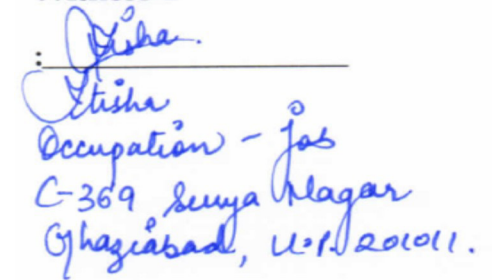 : Itisha
Itisha
Occupation - Job
C-369 Surya Nagar
Ghaziabad, U.P. 201011.